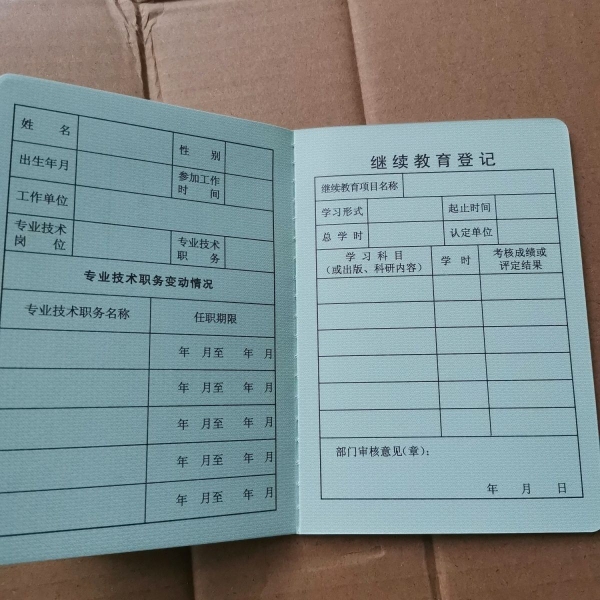 姓 名
性 别
出生年月
参加工作
时 间
工作单位
专业技术
岗 位
专业技术
职 务
专业技术职务变动情况
专业技术职务名称
任职期限
年 月至 年 月
年 月至 年 月
年 月至 年 月
年 月至 年 月
年 月至 年 月
继续教育登记
继续教育项目名称
学习形式
起止时间
总 学 时
认定单位
学 习 科 目
(或出版、科研内容)
学 时
考核成绩或
评定结果
部门审核意见(章):
年 月 日